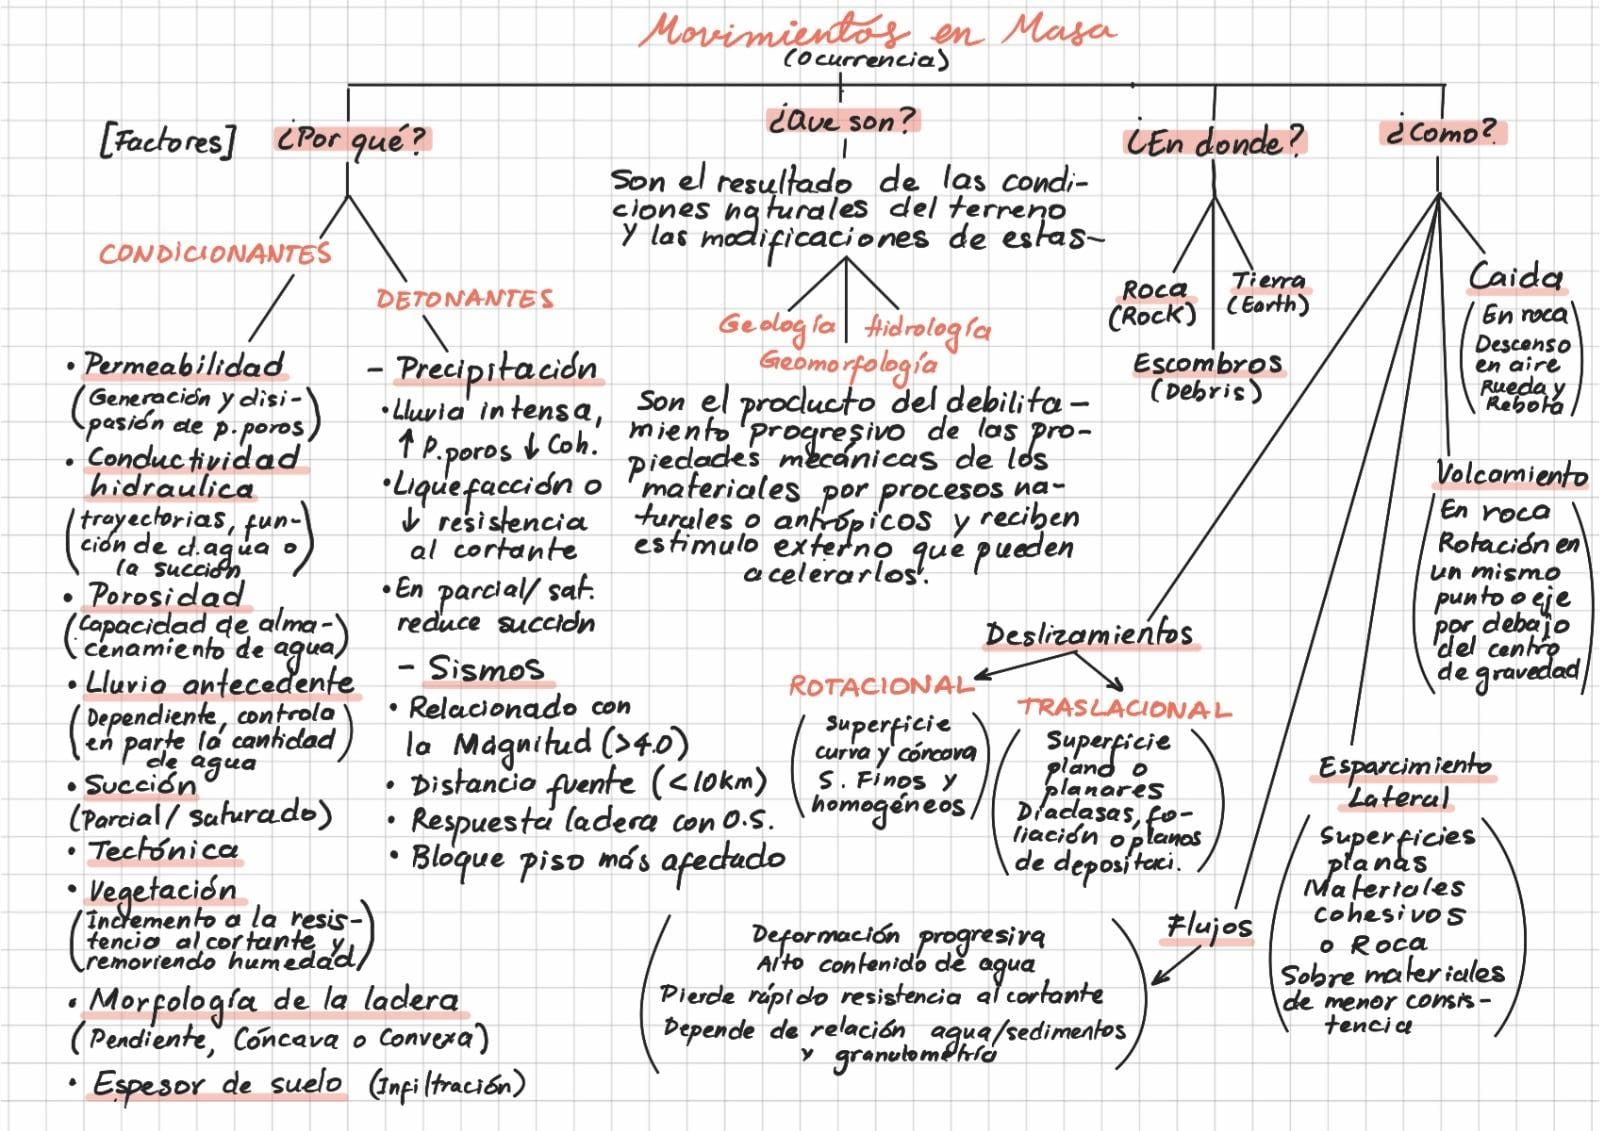 Movimientos en Masa
(Ocurrencia)
[Factores] ¿Por qué?
CONDICIONANTES
• Permeabilidad
(Generación y disi-
pasión de p. poros)
• Conductividad
hidraulica
(trayectorias, fun-
ción de ct. agua o
la succión)
• Porosidad
(Capacidad de alma-
cenamiento de agua)
• Lluvia antecedente
(Dependiente, controla
en parte la cantidad
de agua)
• Succión
(Parcial/saturado)
• Tectónica
• Vegetación
(Incremento a la resis-
tencia al cortante y
removiendo humedad)
• Morfología de la ladera
(Pendiente, Cóncava o Convexa)
• Espesor de suelo (Infiltración)
DETONANTES
- Precipitación
• Lluvia intensa,
↑ P. poros ↓ Coh.
• Liquefacción o
↓ resistencia
al cortante
• En parcial/sat.
reduce succión
- Sismos
• Relacionado con
la Magnitud (>4.0)
• Distancia fuente (<10km)
• Respuesta ladera con O.S.
• Bloque piso más afectado
¿Que son?
Son el resultado de las condi-
ciones naturales del terreno
y las modificaciones de estas-
Geología Hidrología
Geomorfología
Son el producto del debilita-
miento progresivo de las pro-
piedades mecánicas de los
materiales por procesos na-
turales o antrópicos y reciben
estimulo externo que pueden
acelerarlos.
¿En donde?
Roca
(Rock)
Tierra
(Earth)
Escombros
(Debris)
¿Como?
Caida
(En roca
Descenso
en aire
Rueda y
Rebota)
Volcamiento
(En roca
Rotación en
un mismo
punto o eje
por debajo
del centro
de gravedad)
Deslizamientos
ROTACIONAL
(Superficie
curva y cóncava
S. Finos y
homogéneos)
TRASLACIONAL
(Superficie
plano o
planares
Diaclasas, fo-
liación o planos
de depositaci.)
Esparcimiento
Lateral
(Superficies
planas
Materiales
cohesivos
o Roca
Sobre materiales
de menor consis-
tencia)
Flujos
(Deformación progresiva
Alto contenido de agua
Pierde rápido resistencia al cortante
Depende de relación agua/sedimentos
y granulometría)